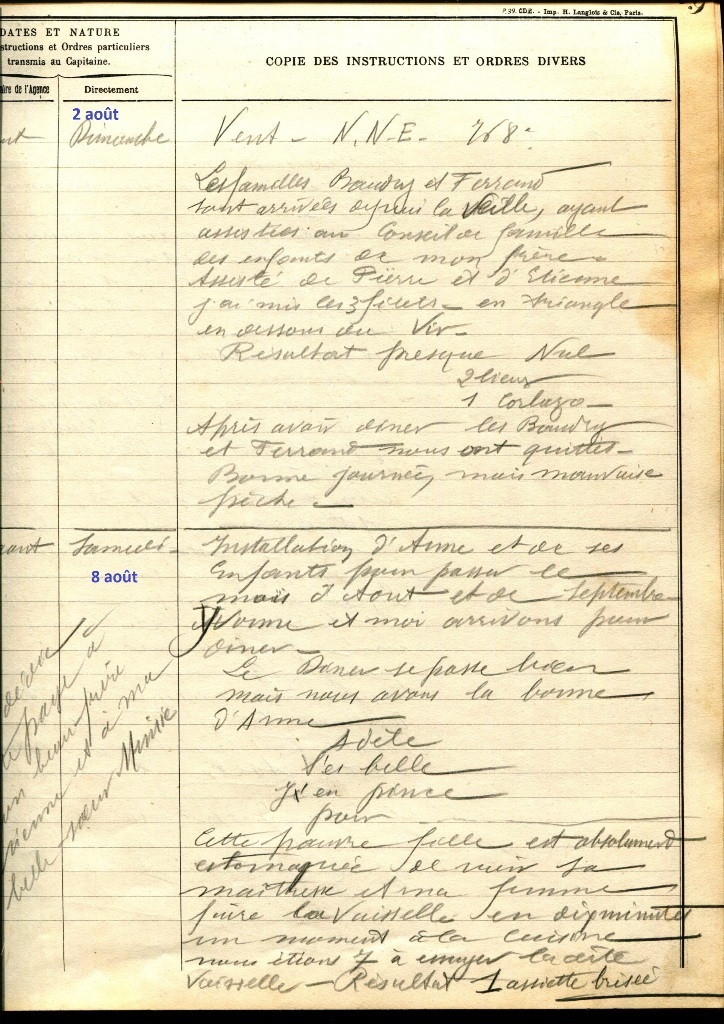 P.39. CDE. - Imp. H. Langlois & Cie, Paris.
DATES ET NATURE
structions et Ordres particuliers
transmis au Capitaine.
COPIE DES INSTRUCTIONS ET ORDRES DIVERS
aire de l'Agence
Directement
2 août
Dimanche
Vent - N.N.E. 768
Les familles Baudry et Ferrand
sont arrivées depuis la Veille, ayant
assistés au Conseil de famille
des enfants de mon frère
Assisté de Pierre et d'Etienne
j'ai mis les 3 filets - en triangle
en dessous du Viv-
Résultat presque Nul
2 lieux
1 Corlazo
Après avoir diner les Baudry
et Ferrand nous ont quittés-
Bonne journée, mais mauvaise
pêche -
Samedi-
8 août
Installation d'Anne et de ses
Enfants pour passer le
mois d'Aout et de Septembre
et moi arrivons pour
diner-
Le Diner se passe bien
mais nous avons la bonne
d'Anne
Adèle
T'es belle
J'en pince
pour
Cette pauvre fille est absolument
estomaquée de voir sa
maîtresse et ma femme
faire la Vaisselle en dix minutes
un moment à la cuisine
nous étions 7 à essuyer la dite
Vaisselle - Résultat 1 assiette brisée
payé à
beau-frère
et à ma
belle-sœur